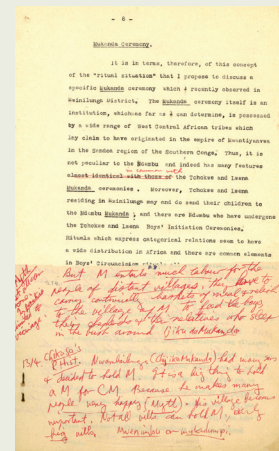 - 8 -
Mukanda Ceremony.
It is in terms, therefore, of this concept
of the "ritual situation" that I propose to discuss a
specific Mukanda ceremony which I recently observed in
Mwinilunga District. The Mukanda ceremony itself is an
institution, which as far as I can determine, is possessed
by a wide range of West Central African tribes which
lay claim to have originated in the empire of Mwantiyanvwa
in the Sandoa region of the Southern Congo. Thus, it is
not peculiar to the Ndembu and indeed has many features
in common with
almost identical with those of the Tchokwe and Lwena
Mukanda ceremonies. Moreover, Tchokwe and Lwena
residing in Mwinilunga may and do send their children to
the Ndembu Mukanda, and there are Ndembu who have undergone
the Tchokwe and Lwena Boys' Initiation Ceremonies.
Rituals which express categorical relations seem to have
a wide distribution in Africa and there are common elements
in Boys' Circumcision
But M entails much labour for the
people of distant villages, they have to
carry continually baskets of meal & mush
to the village M to feed the boys
the relatives who sleep
in the bush around
13/4
had many sons
& decided to hold M. It is a big thing to hold
a M for CM because he makes many
people very happy his village becomes
important. Not all can hold M, only
big